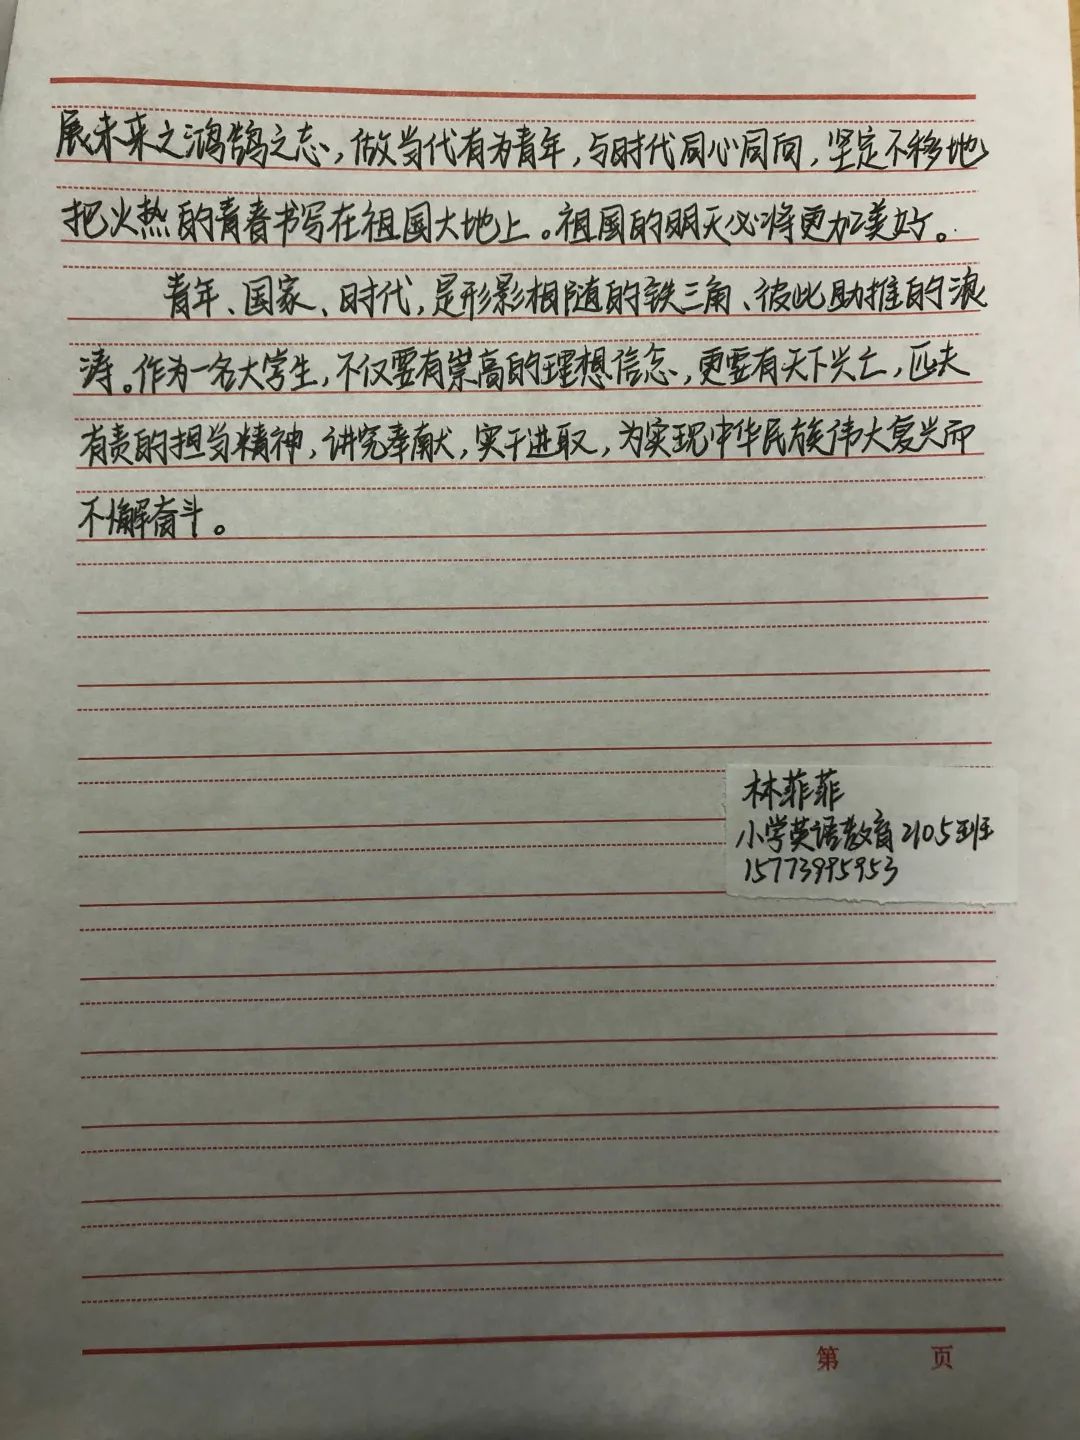 展未来之鸿鹄之志，做当代有为青年，与时代同心同向，坚定不移地
把火热的青春书写在祖国大地上。祖国的明天必将更加美好。
青年、国家、时代，是形影相随的铁三角、彼此助推的浪
涛。作为一名大学生，不仅要有崇高的理想信念，更要有天下兴亡，匹夫
有责的担当精神，讲究奉献，实干进取，为实现中华民族伟大复兴而
不懈奋斗。
林菲菲
小学英语教育2105班
15773995953
第 页